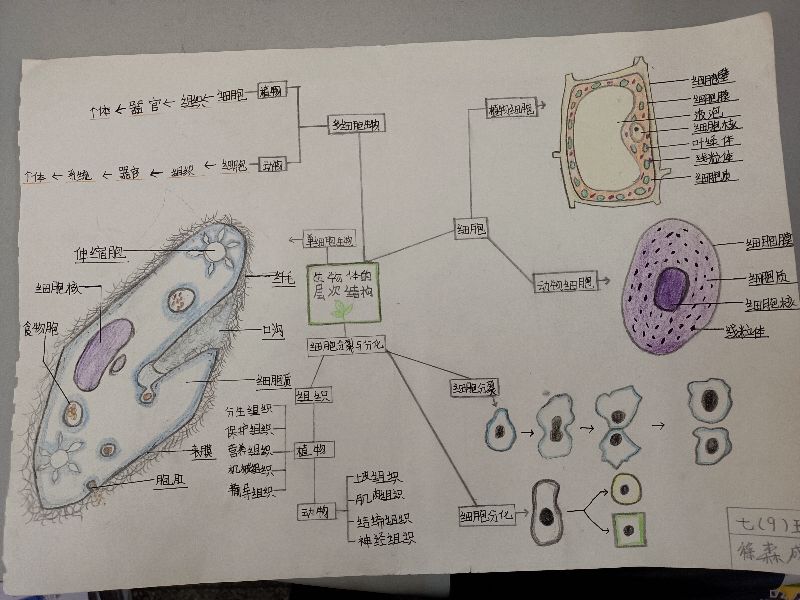 个体 ← 器官 ← 组织 ← 细胞 植物
多细胞生物
个体 ← 系统 ← 器官 ← 组织 ← 细胞 动物
单细胞生物
生物体的
层次结构
细胞
植物细胞
细胞壁
细胞膜
液泡
细胞核
叶绿体
线粒体
细胞质
动物细胞
细胞膜
细胞质
细胞核
线粒体
伸缩胞
细胞核
食物胞
纤毛
口沟
细胞质
表膜
胞肛
细胞分裂与分化
组织
植物
分生组织
保护组织
营养组织
机械组织
输导组织
动物
上皮组织
肌肉组织
结缔组织
神经组织
细胞分裂
细胞分化
七(9)
森